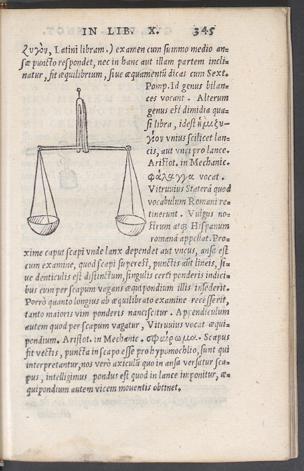 IN LIB. X. 345
ζυγὸν, Latini libram.) examen cum summo medio an-
sæ puncto respondet, nec in hanc aut illam partem incli-
natur, fit æquilibrium, siue æquamentũ dicas cum Sext.
Pomp. Id genus bilan-
ces vocant. Alterum
genus est dimidia qua-
si libra, idest
vnius scilicet lan-
cis, aut vnci pro lance.
Aristot. in Mechanic.
φάλαγγα vocat.
Vitruuius Staterã quod
vocabulum Romani re-
tinerunt. Vulgus no-
strum atq; Hispanum
romanã appellat. Pro-
xime caput scapi vnde lanx dependet aut vncus, ansa est
cum examine, quod scapi superest, punctis aut lineis, si-
ue denticulis est distinctum, singulis certi ponderis indici-
bus cum per scapum vagans æquipondium illis insederit.
Porrò quanto longius ab æquilibrato examine recesserit,
tanto maioris vim ponderis nanciscitur. Appendiculum
autem quod per scapum vagatur, Vitruuius vocat æqui-
pondium. Aristot. in Mechanic. σφαίρωμα. Scapus
fit vectis, puncta in scapo esse pro hypomochlio, sunt qui
interpretantur, nos verò axiculũ quo in ansa versatur sca-
pus, intelligimus pondus est quod in lance imponitur, æ-
quipondium autem vicem mouentis obtinet.